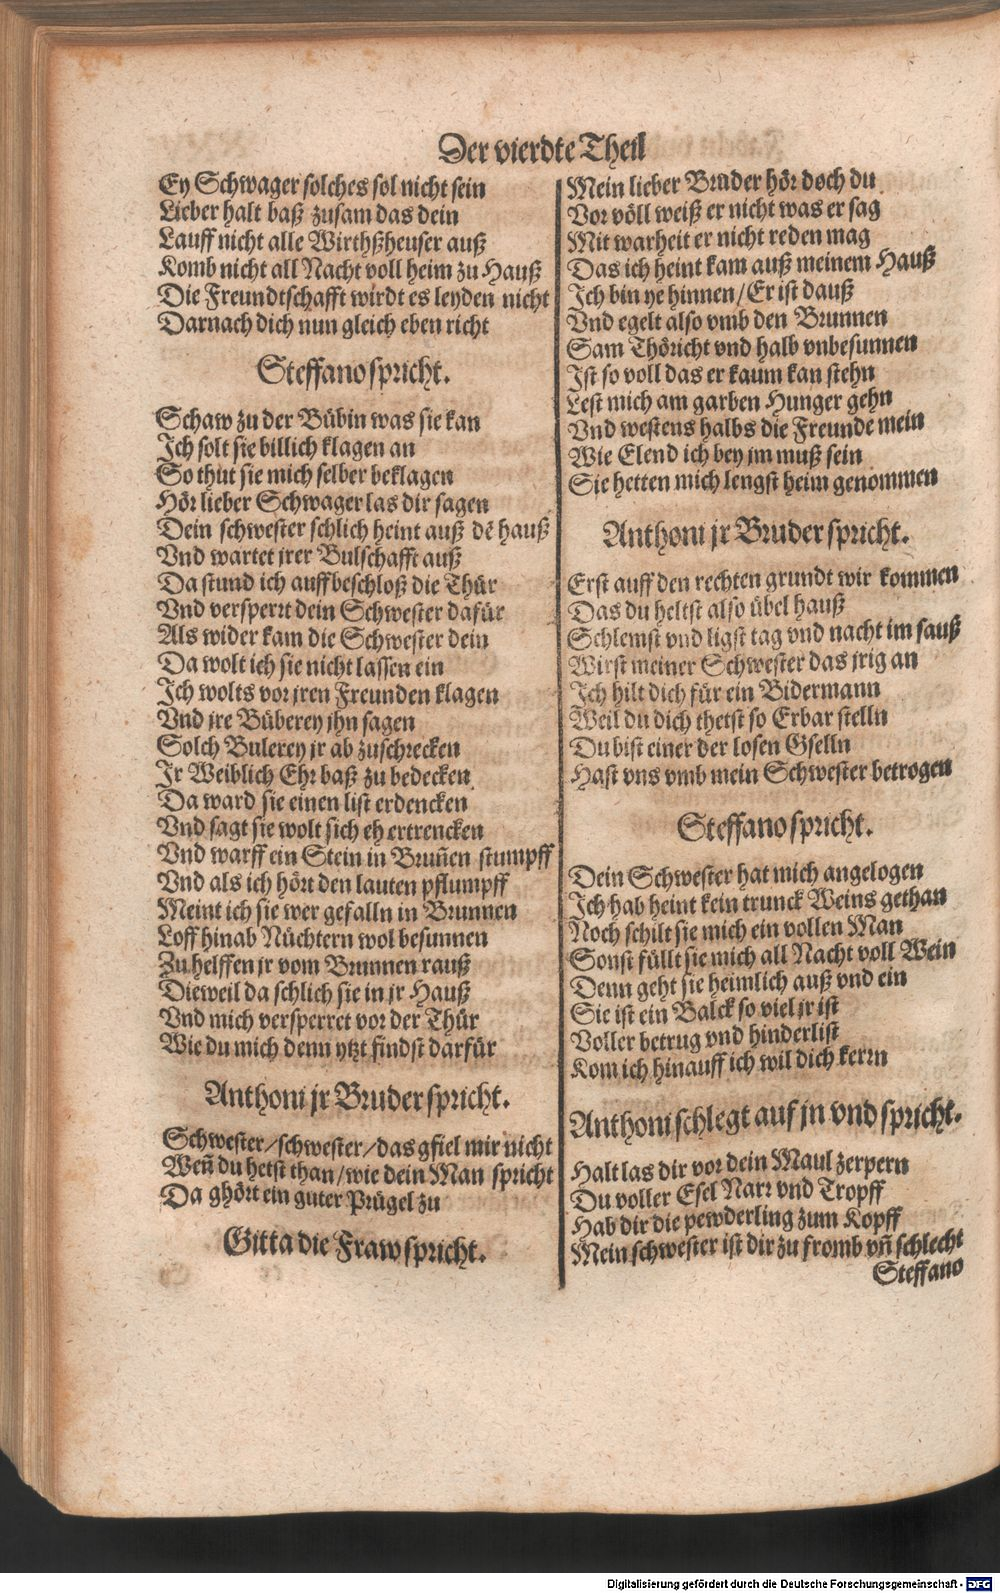 Der vierdte Theil
Ey Schwager solches sol nicht sein
Lieber halt baß zusam das dein
Lauff nicht alle Wirthßheuser auß
Komb nicht all Nacht voll heim zu Hauß
Die Freundtschafft wirdt es leyden nicht
Darnach dich nun gleich eben richt
Steffano spricht.
Schaw zu der Bübin was sie kan
Ich solt sie billich klagen an
So thut sie mich selber beklagen
Hör lieber Schwager las dir sagen
Dein schwester schlich heint auß dē hauß
Vnd wartet jrer Bulschafft auß
Da stund ich auff beschloß die Thür
Vnd versperrt dein Schwester dafür
Als wider kam die Schwester dein
Da wolt ich sie nicht lassen ein
Ich wolts vor jren Freunden klagen
Vnd jre Büberey jhn sagen
Solch Bulerey jr ab zuschrecken
Ir Weiblich Ehr baß zu bedecken
Da ward sie einen list erdencken
Vnd sagt sie wolt sich eh ertrencken
Vnd warff ein Stein in Brun̄en stumpff
Vnd als ich hört den lauten pflumpff
Meint ich sie wer gefalln in Brunnen
Loff hinab Nüchtern wol besunnen
Zu helffen jr vom Brunnen rauß
Dieweil da schlich sie in jr Hauß
Vnd mich versperret vor der Thür
Wie du mich denn ytzt findst darfür
Anthoni jr Bruder spricht.
Schwester/schwester/das gfiel mir nicht
Wen̄ du hetst than/wie dein Man spricht
Da ghört ein guter Prügel zu
Gitta die Fraw spricht.
Mein lieber Bruder hör doch du
Vor völl weiß er nicht was er sag
Mit warheit er nicht reden mag
Das ich heint kam auß meinem Hauß
Ich bin ye hinnen/Er ist dauß
Vnd egelt also vmb den Brunnen
Sam Thöricht vnd halb vnbesunnen
Ist so voll das er kaum kan stehn
Lest mich am garben Hunger gehn
Vnd westens halbs die Freunde mein
Wie Elend ich bey jm muß sein
Sie hetten mich lengst heim genommen
Anthoni jr Bruder spricht.
Erst auff den rechten grundt wir kommen
Das du heltst also übel hauß
Schlemst vnd ligst tag vnd nacht im sauß
Wirst meiner Schwester das jrig an
Ich hilt dich für ein Bidermann
Weil du dich thetst so Erbar stelln
Du bist einer der losen Gselln
Hast vns vmb mein Schwester betrogen
Steffano spricht.
Dein Schwester hat mich angelogen
Ich hab heint kein trunck Weins gethan
Noch schilt sie mich ein vollen Man
Sonst füllt sie mich all Nacht voll Wein
Denn geht sie heimlich auß vnd ein
Sie ist ein Balck so viel jr ist
Voller betrug vnd hinderlist
Kom ich hinauff ich wil dich kerrn
Anthoni schlegt auf jn vnd spricht.
Halt las dir vor dein Maul zerpern
Du voller Esel Narr vnd Tropff
Hab dir die pewderling zum Kopff
Mein schwester ist dir zu fromb vn̄ schlecht
Steffano
Digitalisierung gefördert durch die Deutsche Forschungsgemeinschaft - DFG